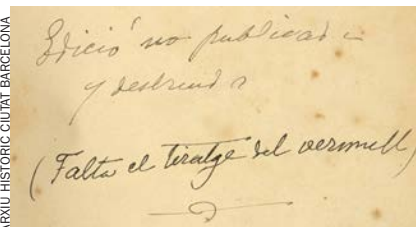 ARXIU HISTÒRIC CIUTAT BARCELONA
Edició no publicada
y destruida
(Falta el tiratge del vermell)